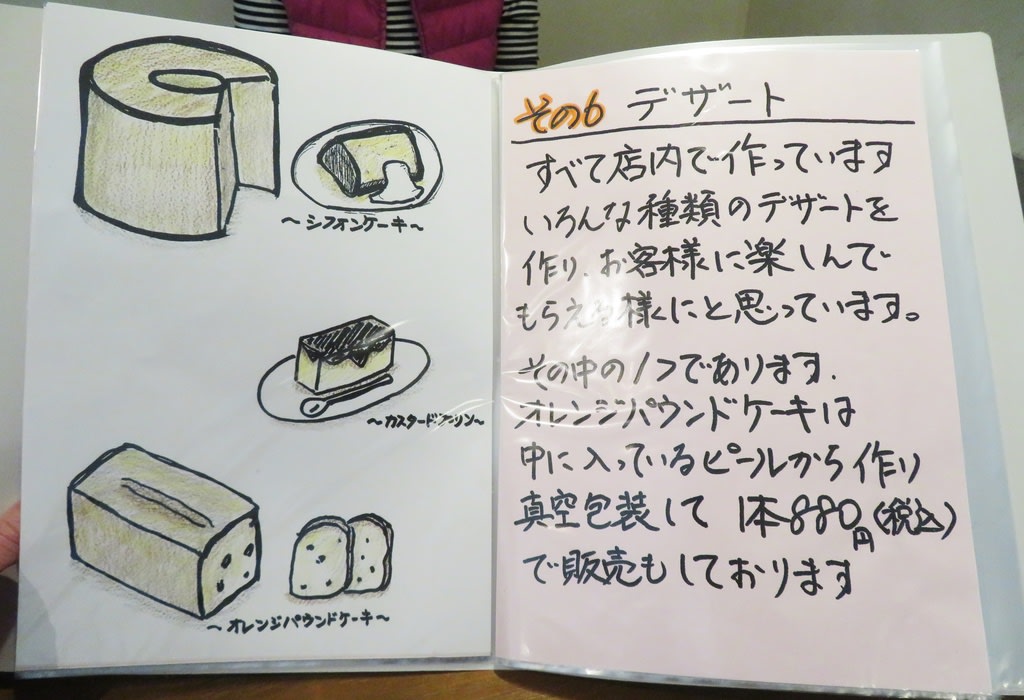 〜シフォンケーキ〜
〜カスタードプリン〜
〜オレンジパウンドケーキ〜
その6 デザート
すべて店内で作っています
いろんな種類のデザートを
作り、お客様に楽しんで
もらえる様にと思っています。
その中の1つであります.
オレンジパウンドケーキは
中に入っているピールから作り
真空包装して 1本880円(税込)
で販売もしております